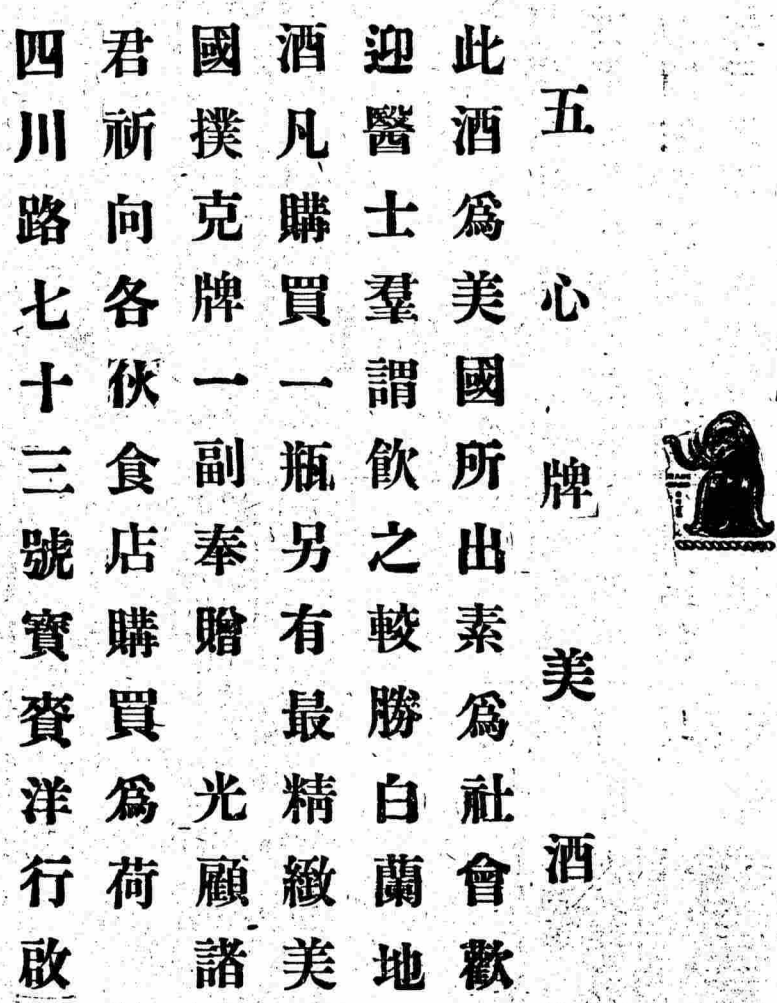 五心牌美酒
此酒爲美國所出素爲社會歡
迎醫士羣謂飲之較勝白蘭地
酒凡購買一瓶另有最精緻美
國撲克牌一副奉贈　光顧諸
君祈向各伙食店購買爲荷
四川路七十三號寶賚洋行啟